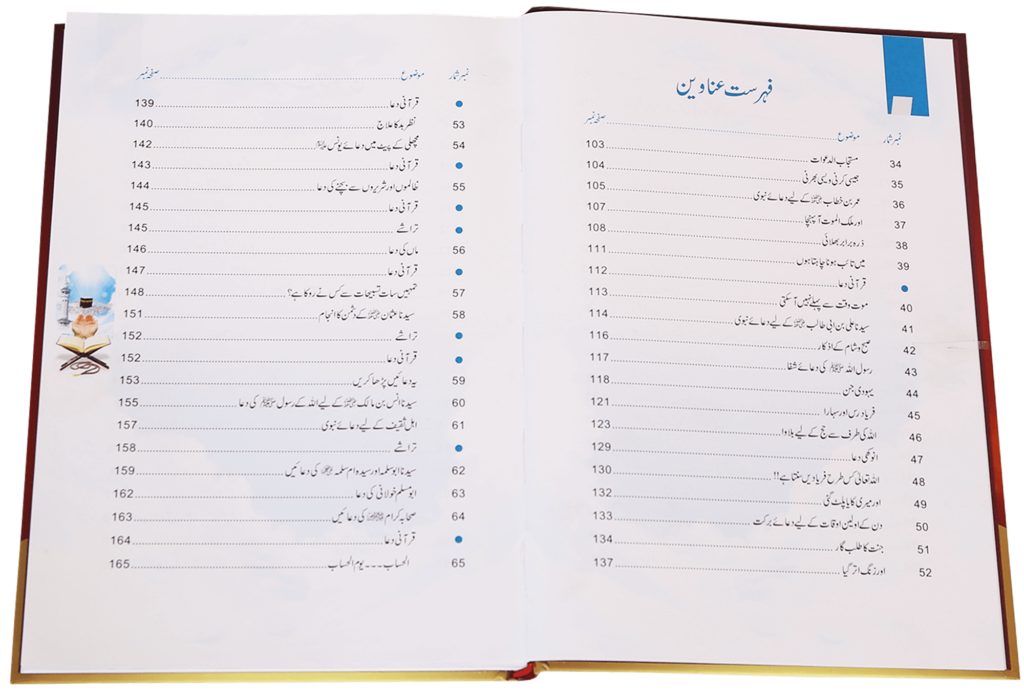 فہرست عناوین
نمبر شمار موضوع صفحہ نمبر
34 مستجاب الدعوات 103
35 جیسی کرنی ویسی بھرنی 104
36 عمر بن خطاب رضی اللہ عنہ کے لیے دعائے نبوی 105
37 اور ملک الموت آ پہنچا 107
38 ذرہ برابر بھلائی 108
39 میں تائب ہونا چاہتا ہوں 111
● قرآنی دعا 112
40 موت وقت سے پہلے نہیں آ سکتی 113
41 سیدنا علی بن ابی طالب رضی اللہ عنہ کے لیے دعائے نبوی 114
42 صبح و شام کے اذکار 116
43 رسول اللہ ﷺ کی دعائے شفا 117
44 یہودی جن 118
45 فریاد رس اور سہارا 121
46 اللہ کی طرف سے حج کے لیے بلاوا 123
47 انوکھی دعا 129
48 اللہ تعالیٰ کس طرح فریادیں سنتا ہے!! 130
49 اور میری کایا پلٹ گئی 132
50 دن کے اولین اوقات کے لیے دعائے برکت 133
51 جنت کا طلب گار 134
52 اور زنگ اتر گیا 137
نمبر شمار موضوع صفحہ نمبر
● قرآنی دعا 139
53 نظر بد کا علاج 140
54 مچھلی کے پیٹ میں دعائے یونس 142
● قرآنی دعا 143
55 ظالموں اور شریروں سے بچنے کی دعا 144
● قرآنی دعا 145
● تراشے 145
56 ماں کی دعا 146
● قرآنی دعا 147
57 تمہیں سات تسبیحات سے کس نے روکا ہے؟ 148
58 سیدنا عثمان رضی اللہ عنہ کے دشمن کا انجام 151
● تراشے 152
● قرآنی دعا 152
59 یہ دعائیں پڑھا کریں 153
60 سیدنا انس بن مالک رضی اللہ عنہ کے لیے اللہ کے رسول ﷺ کی دعا 155
61 اہل ثقیف کے لیے دعائے نبوی 157
● تراشے 158
62 سیدنا ابو سلمہ اور سیدہ ام سلمہ کی دعائیں 159
63 ابو مسلم خولانی کی دعا 162
64 صحابہ کرام کی دعائیں 163
● قرآنی دعا 164
65 الحساب ۔۔۔ یوم الحساب 165